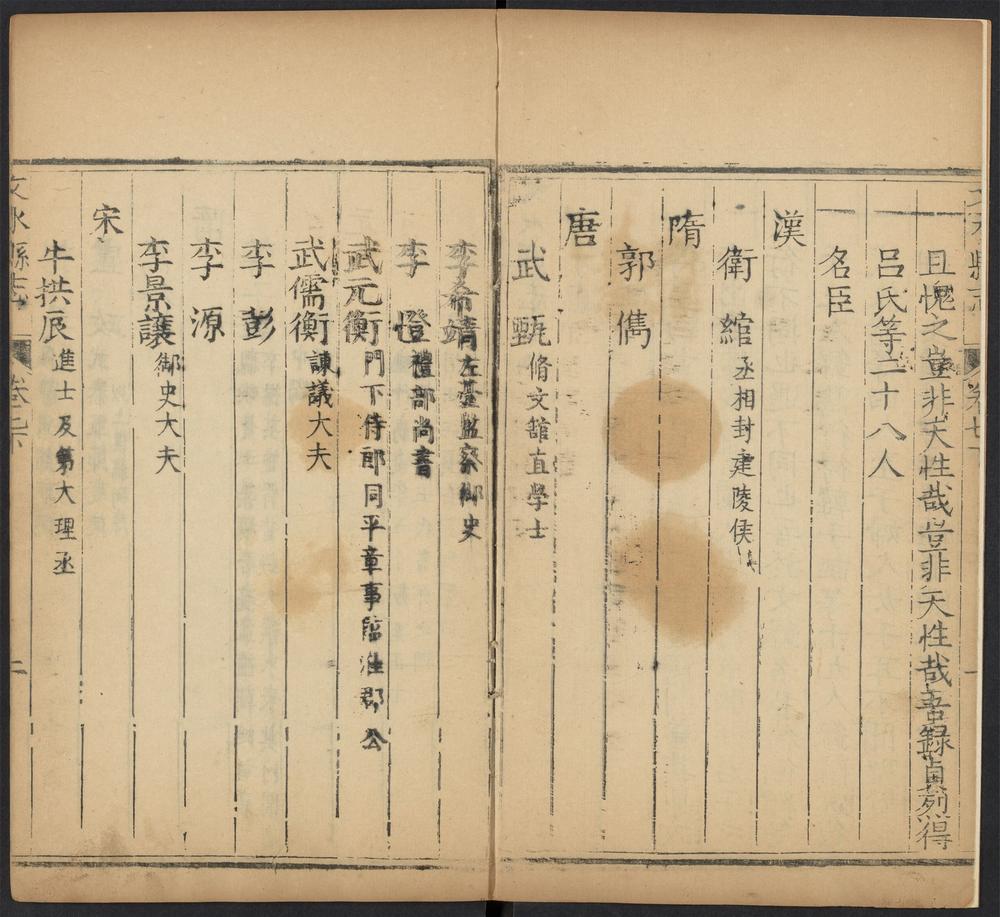 且愧之豈非天性哉豈非天性哉吾錄貞烈得
呂氏等二十八人
名臣
漢
衛綰丞相封建陵侯
隋
郭儁
唐
武甄脩文舘直學士
李希靖左臺監察御史
李憕禮部尚書
武元衡門下侍郎同平章事臨淮郡公
武儒衡諫議大夫
李彭
李源
李景讓御史大夫
宋
牛拱辰進士及第大理丞
文水縣志
二